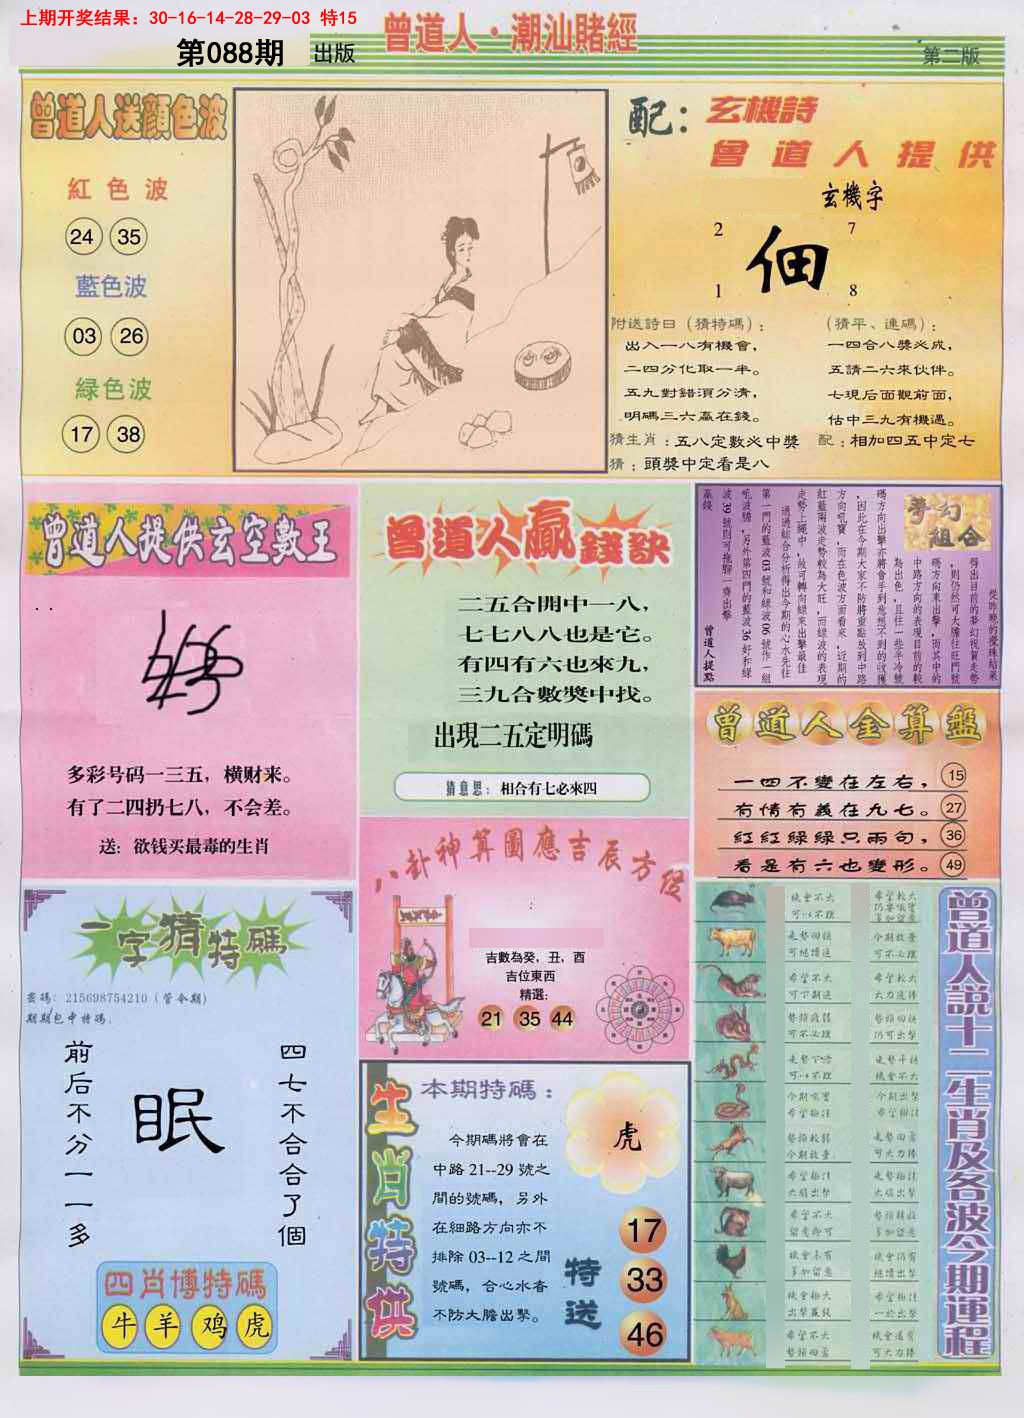 上期开奖结果：30-16-14-28-29-03 特15
曾道人·潮汕賭經
第088期 出版
第二版
曾道人送顏色波
紅色波
24 35
藍色波
03 26
緑色波
17 38
配：玄機詩
曾道人提供
玄機字
2 7
佃
1 8
附送詩曰（猜特碼）：
出入一八有機會，
二四分化取一半。
五九對錯須分清，
明碼三六贏在錢。
（猜平、連碼）：
一四合八獎必成，
五請二六來伙伴。
七現后面觀前面，
估中三九有機遇。
猜生肖：五八定數必中獎
配：相加四五中定七
猜：頭獎中定看是八
曾道人提供玄空數王
多彩号码一三五，横财来。
有了二四扔七八，不会差。
送：欲钱买最毒的生肖
曾道人贏錢訣
二五合開中一八，
七七八八也是它。
有四有六也來九，
三九合數獎中找。
出現二五定明碼
猜意思：相合有七必來四
夢幻組合
從昨晚的攪珠結果
得出目前的夢幻祝賀走勢
，則仍然可大膽往旺門號
碼方向來出擊，而其中的
中路方向的表現目前的較
為出色，且往一些半冷號
碼方向出擊亦將會手到意想不到的收獲
，因此在今期大家不防將重點放到中路
方向吼寶，而在色波方面看來，近期的
紅藍兩波走勢較為大旺，而綠波的表現
走勢上繩中，故可轉向綠來出擊最佳
通過綜合分析得出今期的心水先往
第一門的藍波03號和綠波06號作一組
吼波膽，另外第四門的藍波36好和綠
波39號則可拖歸一齊出擊
贏錢
曾道人提點
曾道人金算盤
一四不變在左右， 15
有情有義在九七。 27
紅紅緑緑只兩句， 36
看是有六也變形。 49
八卦神算圖應吉辰方位
吉數為癸，丑，酉
吉位東西
精選：
21 35 44
一字猜特碼
密碼：215698754210（管今期）
期期包中特碼．
前后不分一一多
眠
四七不合合了個
四肖博特碼
牛 羊 鸡 虎
生肖特供
本期特碼：
今期碼將會在
中路21--29號之
間的號碼，另外
在細路方向亦不
排除03--12之間
號碼，合心水者
不防大膽出擊。
虎
特送
17
33
46
曾道人説十二生肖及各波今期運程